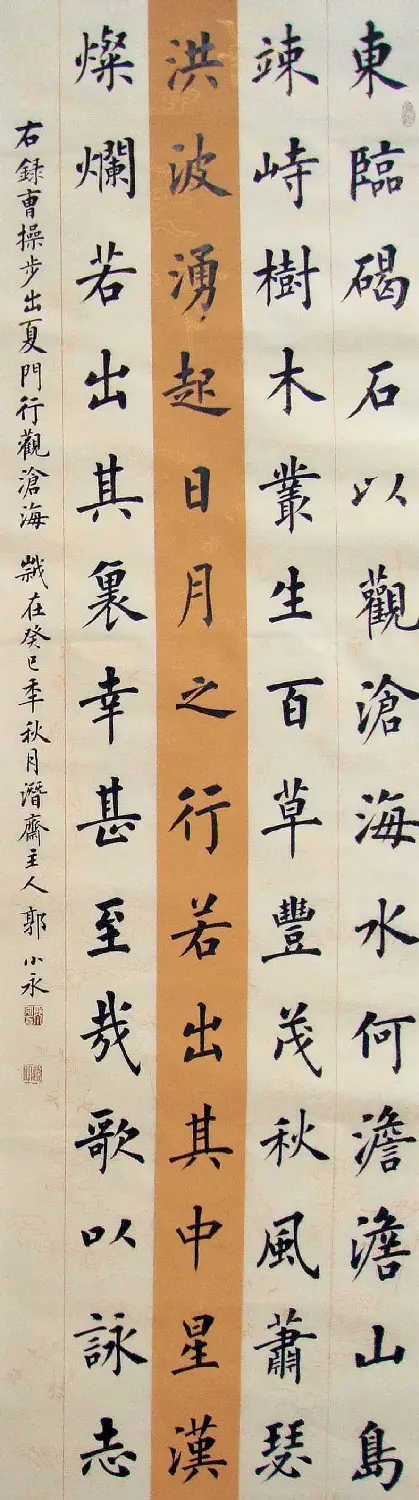 東臨碣石以觀滄海水何澹澹山島
竦峙樹木叢生百草豐茂秋風蕭瑟
洪波湧起日月之行若出其中星漢
燦爛若出其裏幸甚至哉歌以詠志
右録曹操步出夏門行觀滄海 歲在癸巳年秋月潛齋主人郭小永